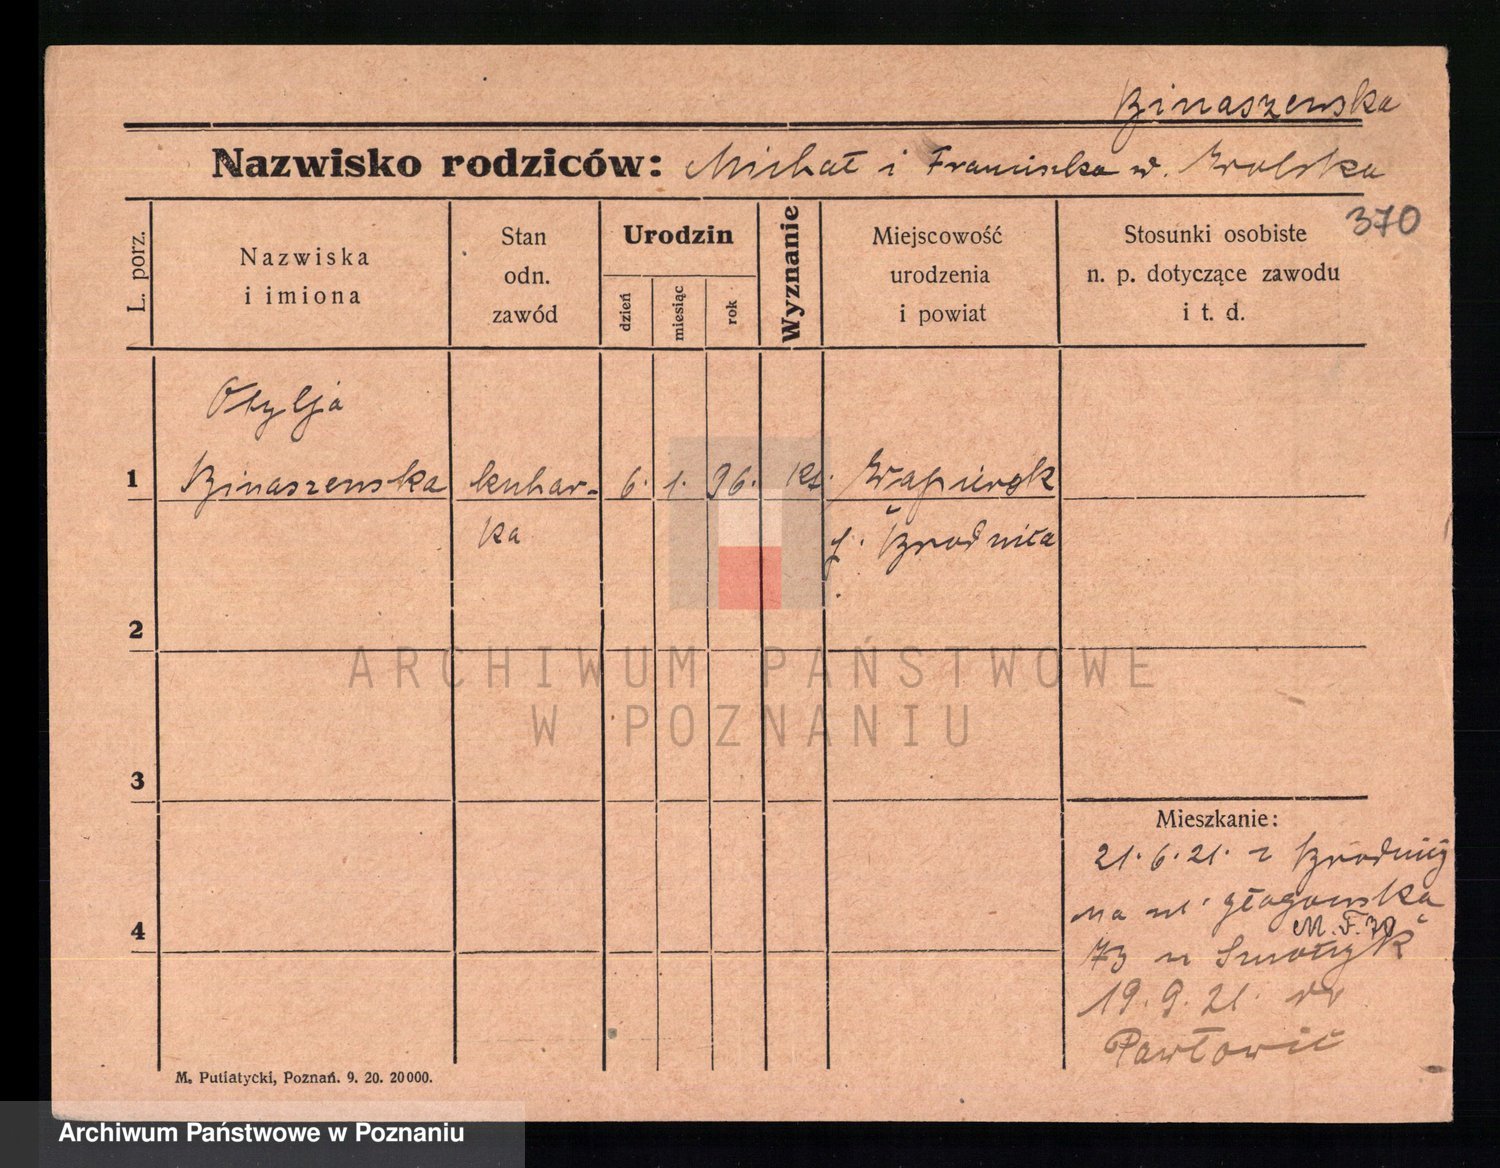 Binaszewska
Nazwisko rodziców: Michał i Franciszka w. Wolska
370
L. porz.
Nazwiska
i imiona
Stan
odn.
zawód
Urodzin
dzień
miesiąc
rok
Wyznanie
Miejscowość
urodzenia
i powiat
Stosunki osobiste
n. p. dotyczące zawodu
i t. d.
Otylja
1 Binaszewska kuhar- 6. 1. 96. kt. Wapiersk
ka p. Brodnica
2
3
4
Mieszkanie:
21.6.21. z Brodnicy
na ul. Głogowską
M. F. 70
73 u
19.9.21. w
Pawłowic
M. Putiatycki, Poznań. 9. 20. 20000.
ARCHIWUM PAŃSTWOWE
W POZNANIU
Archiwum Państwowe w Poznaniu